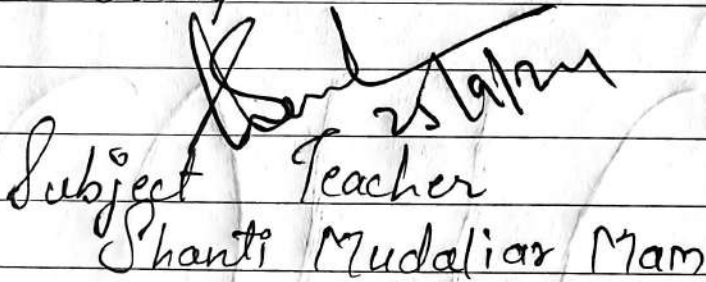 25/9/24
Subject Teacher
Shanti Mudaliar Mam